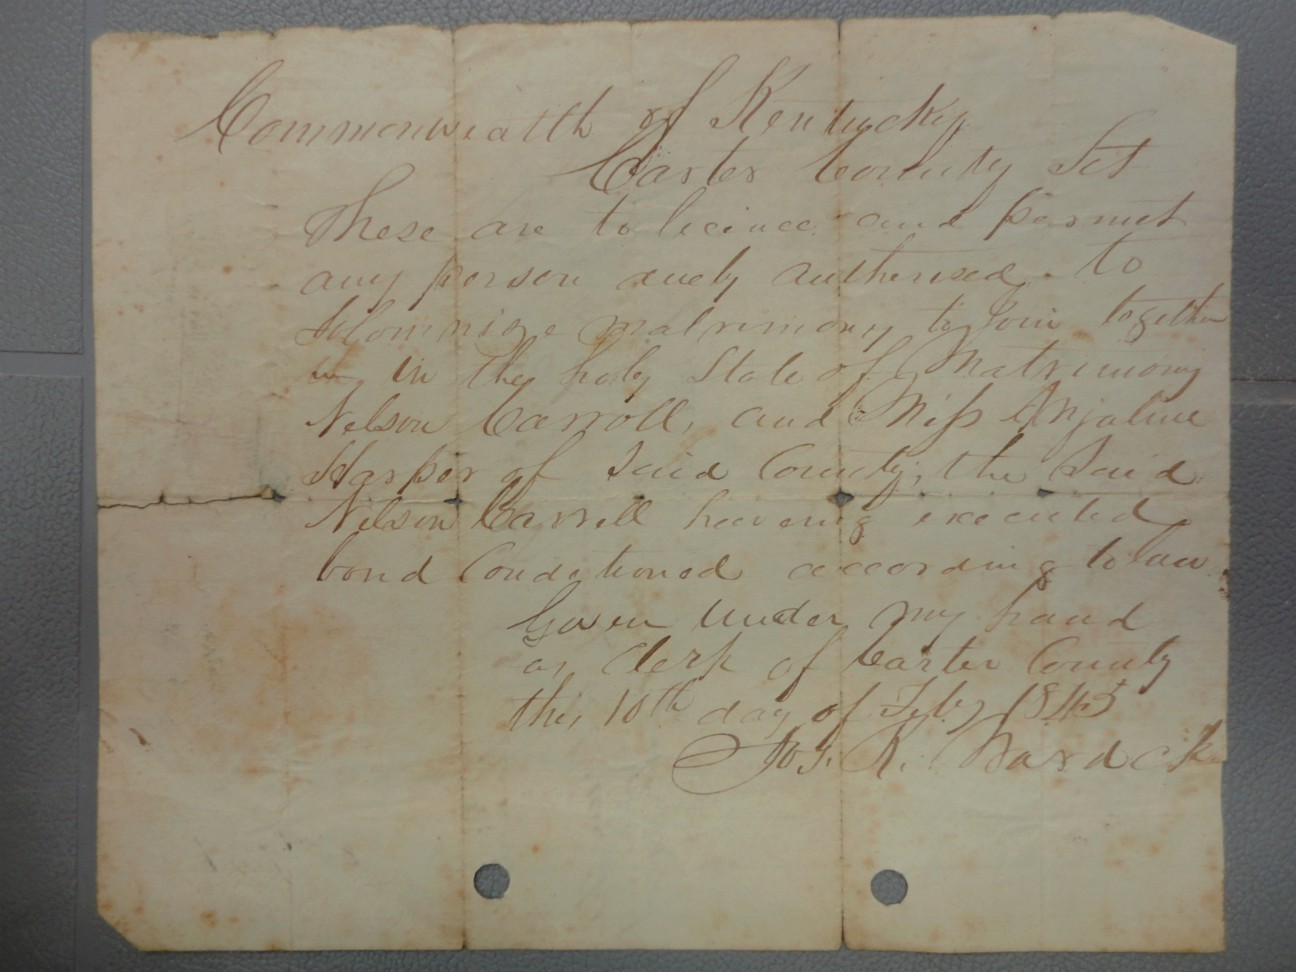 Commonwealth of Kentucky
Carter County Sct
These are to licince and permit
any person duely authorised to
Solomnise matrimony to Join together
in in the holy State of Matrimony
Nelson Carroll, and Miss Anjaline
Harper of Said County, the Said
Nelson Carrell haveing executed
bond Conditioned according to law
Given under my hand
as Clerk of Carter County
this 10th day of Feby 1845
Jos. R. Wardock